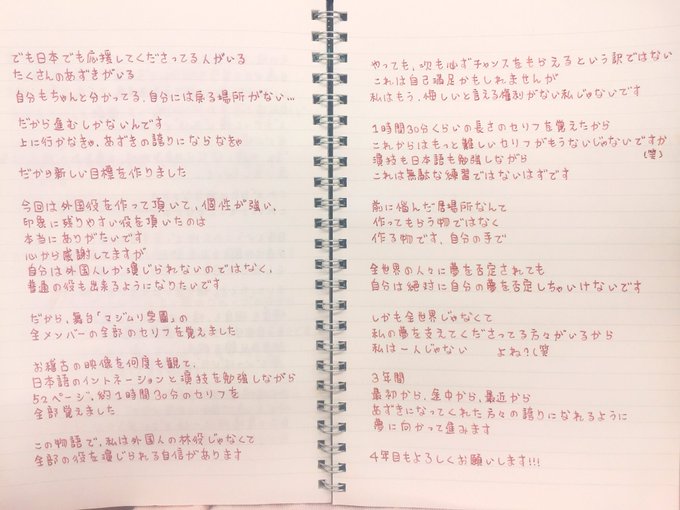 でも日本でも応援してくださってる人がいる
たくさんのあずきがいる
自分もちゃんと分かってる、自分には戻る場所がない…
だから進むしかないんです
上に行かなきゃ、あずきの誇りにならなきゃ
だから新しい目標を作りました
今回は外国役を作って頂いて、個性が強い、
印象に残りやすい役を頂いたのは
本当にありがたいです
心から感謝してますが
自分は外国人しか演じられないのではなく、
普通の役も出来るようになりたいです
だから、舞台「マジムリ学園」の
全メンバーの全部のセリフを覚えました
お稽古の映像を何度も観て、
日本語のイントネーションと演技を勉強しながら
52ページ、約1時間30分のセリフを
全部覚えました
この物語で、私は外国人の林役じゃなくて
全部の役を演じられる自信があります
やっても、次も必ずチャンスをもらえるという訳ではない
これは自己満足かもしれませんが
私はもう、悔しいと言える権利がない私じゃないです
1時間30分くらいの長さのセリフを覚えたから
これからはもっと難しいセリフがもうないじゃないですか(笑)
演技も日本語も勉強しながら
これは無駄な練習ではないはずです
前に悩んだ居場所なんて
作ってもらう物ではなく
作る物です、自分の手で
全世界の人々に夢を否定されても
自分は絶対に自分の夢を否定しちゃいけないです
しかも全世界じゃなくて
私の夢を支えてくださってる方々がいるから
私は一人じゃない よね?(笑
3年間
最初から、途中から、最近から
あずきになってくれた方々の誇りになれるように
夢に向かって進みます
4年目もよろしくお願いします!!!